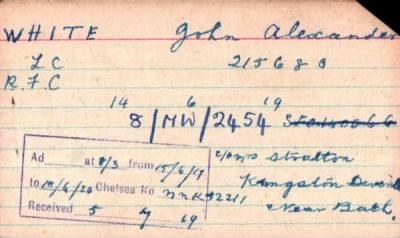 WHITE John Alexander
L C 215680
R.F.C
14 6 19
8/MW/2454
Ad at 8/3 from 15/6/19 c/o Mrs Stratton
to 14/6/20 Chelsea No Kingston
Received 5 7 69 Near Bath.